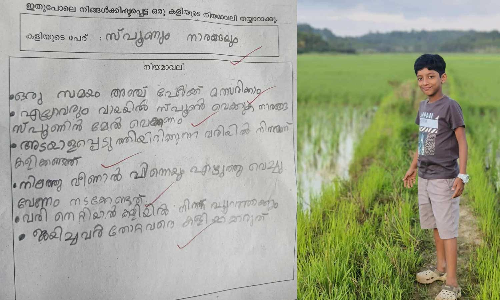 ഇതുപോലെ നിങ്ങൾക്കിഷ്ടപ്പെട്ട ഒരു കളിയുടെ നിയമാവലി തയ്യാറാക്കൂ.
കളിയുടെ പേര് : സ്പൂണും നാരങ്ങയും
നിയമാവലി
• ഒരു സമയം അഞ്ച് പേർക്ക് മത്സരിക്കാം
• എല്ലാവരും വായിൽ സ്പൂൺ വെക്കുക നാരങ്ങ
സ്പൂണിൻ മേൽ വെക്കണം
• അടയാളപ്പെടുത്തിയിരിക്കുന്ന വരിയിൽ നിന്നാണ്
കളിക്കേണ്ടത്
• നിലത്തു വീണാൽ വീണ്ടെയും എടുത്തു വെച്ചു
വേണം നടക്കേണ്ടത്
• വരി തെറ്റിയാൽ കളിയിൽ നിന്ന് പുറത്താക്കും
• ജയിച്ചവർ തോറ്റവരെ കളിയാക്കരുത്